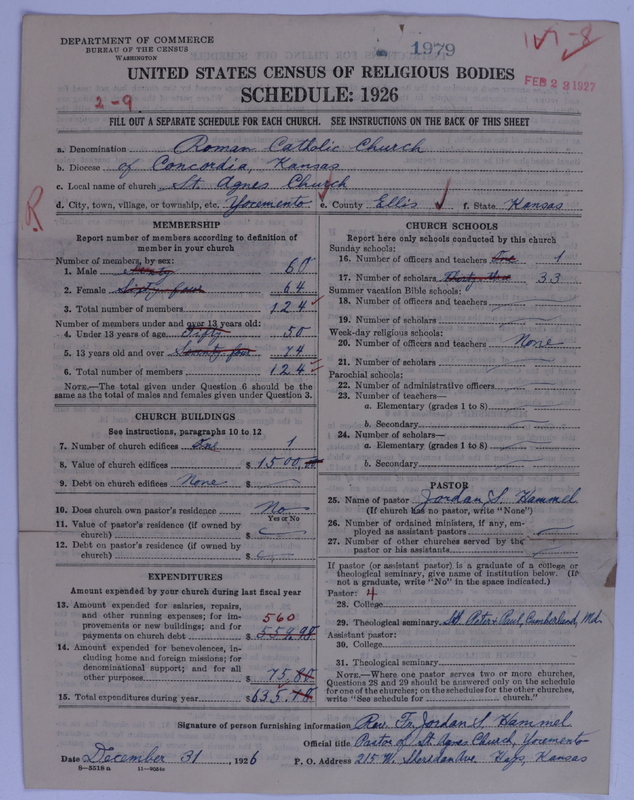 DEPARTMENT OF COMMERCE
BUREAU OF THE CENSUS
WASHINGTON
1979
FEB 23 1927
UNITED STATES CENSUS OF RELIGIOUS BODIES
2-9
SCHEDULE: 1926
FILL OUT A SEPARATE SCHEDULE FOR EACH CHURCH. SEE INSTRUCTIONS ON THE BACK OF THIS SHEET
a. Denomination Roman Catholic Church
b. Diocese of Concordia, Kansas
c. Local name of church St. Agnes Church
d. City, town, village, or township, etc. Yoremento e. County Ellis f. State Kansas
R
MEMBERSHIP
Report number of members according to definition of
member in your church
Number of members, by sex:
1. Male Sixty 60
2. Female Sixty four 64
3. Total number of members 124
Number of members under and over 13 years old:
4. Under 13 years of age Fifty 50
5. 13 years old and over Seventy four 74
6. Total number of members 124
NOTE.—The total given under Question 6 should be
same as the total of males and females given under Question 3.
CHURCH BUILDINGS
See instructions, paragraphs 10 to 12
7. Number of church edifices One 1
8. Value of church edifices $1500.00
9. Debt on church edifices None $
10. Does church own pastor's residence No
Yes or No
11. Value of pastor's residence (if owned by
church) $
12. Debt on pastor's residence (if owned by
church) $
EXPENDITURES
Amount expended by your church during last fiscal year
13. Amount expended for salaries, repairs,
and other running expenses; for im-
provements or new buildings; and for
payments on church debt
560
$559.98
14. Amount expended for benevolences, in-
cluding home and foreign missions; for
denominational support; and for all
other purposes $75.80
15. Total expenditures during year $635.78
CHURCH SCHOOLS
Report here only schools conducted by this church
Sunday schools:
16. Number of officers and teachers One 1
17. Number of scholars Thirty three 33
Summer vacation Bible schools:
18. Number of officers and teachers
19. Number of scholars
Week-day religious schools:
20. Number of officers and teachers None
21. Number of scholars
Parochial schools:
22. Number of administrative officers
23. Number of teachers—
a. Elementary (grades 1 to 8)
b. Secondary
24. Number of scholars—
a. Elementary (grades 1 to 8)
b. Secondary
PASTOR
25. Name of pastor Jordan S. Hammel
(If church has no pastor, write "None")
26. Number of ordained ministers, if any, em-
ployed as assistant pastors
27. Number of other churches served by the
pastor or his assistants
If pastor (or assistant pastor) is a graduate of a college or
theological seminary, give name of institution below. (If
not a graduate, write "No" in the space indicated.)
Pastor: 4
28. College
29. Theological seminary SS. Peter & Paul, Cumberland, Md.
Assistant pastor:
30. College
31. Theological seminary
NOTE.—Where one pastor serves two or more churches,
Questions 28 and 29 should be answered only on the schedule
for one of the churches; on the schedules for the other churches,
write "See schedule for church."
Signature of person furnishing information Rev. Fr. Jordan S. Hammel
Official title Pastor of St. Agnes Church, Yoremento
Date December 31, 1926 P. O. Address 215 W. Sheridan Ave. Hays, Kansas
8—5518a 11—9024a